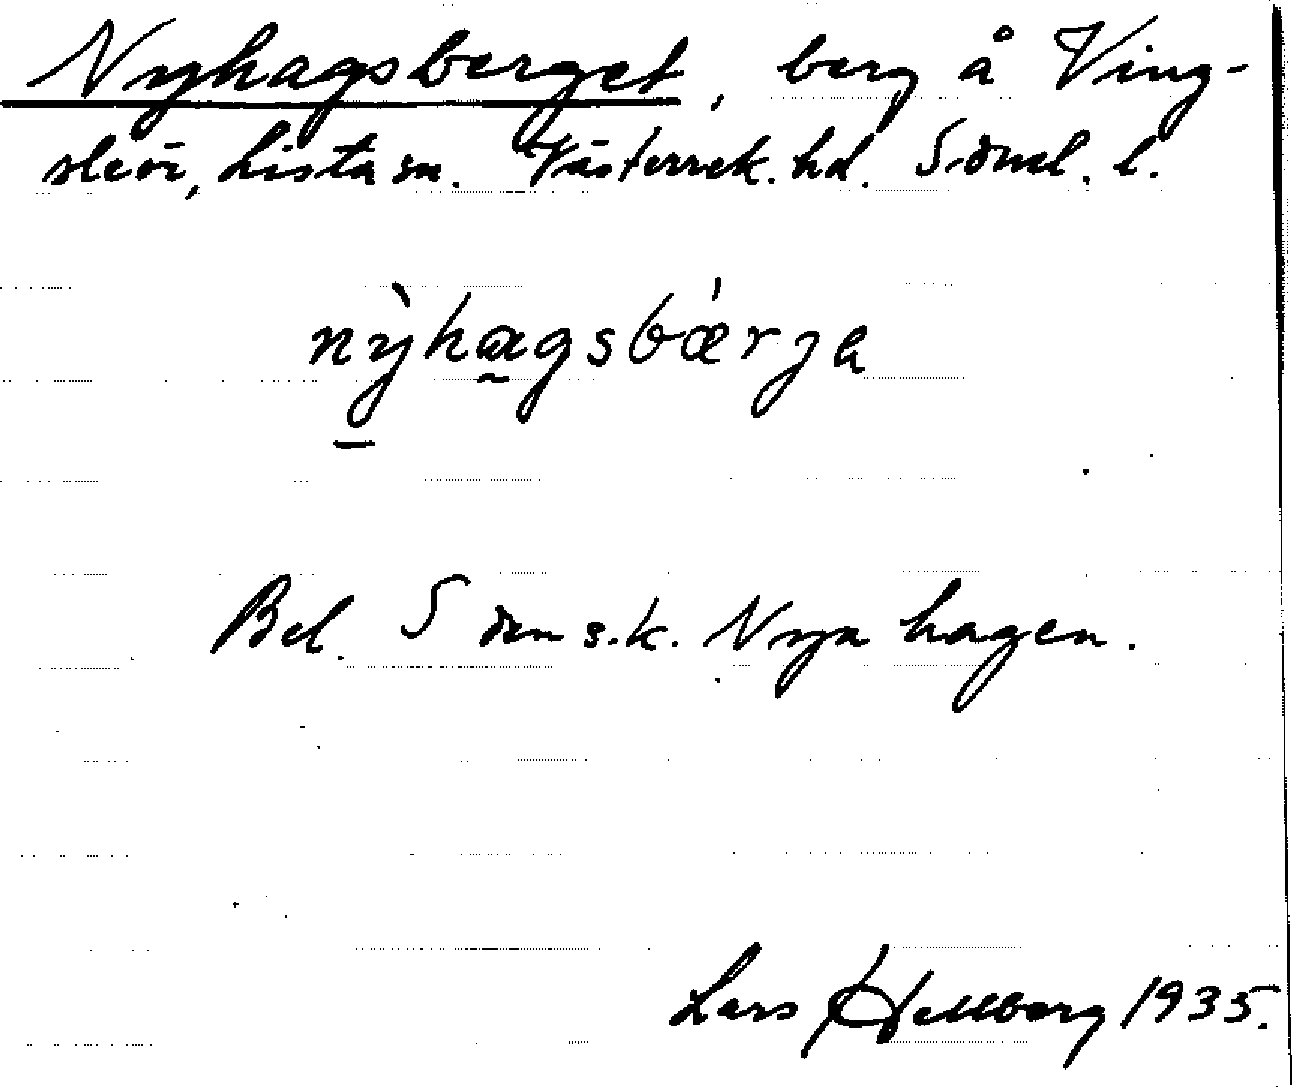 Nyhagsberget, berg å Ving-
sleör, Lista sn. Västerrek. hd. Söml. l.
nỳhagsbǽrja
Bel. S om s.k. Nya hagen.
Lars Hellberg 1935.